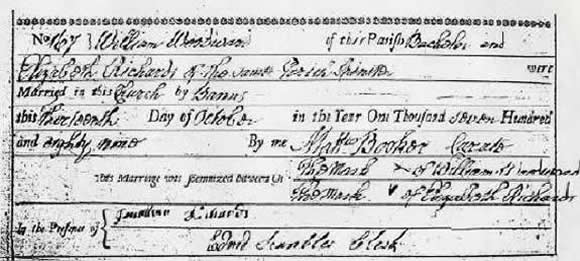 No 167 } William Woodward of this Parish Batchelor and
Elizabeth Richards of the same Parish Spinster were
Married in this Church by Banns
this Thirteenth Day of October in the Year One Thousand Seven Hundred
and eighty nine By me Mattw Booker Curate
This Marriage was solemnized between Us The Mark × of William Woodward
The Mark v of Elizabeth Richards
In the Presence of { Richards
Scambler Clerk